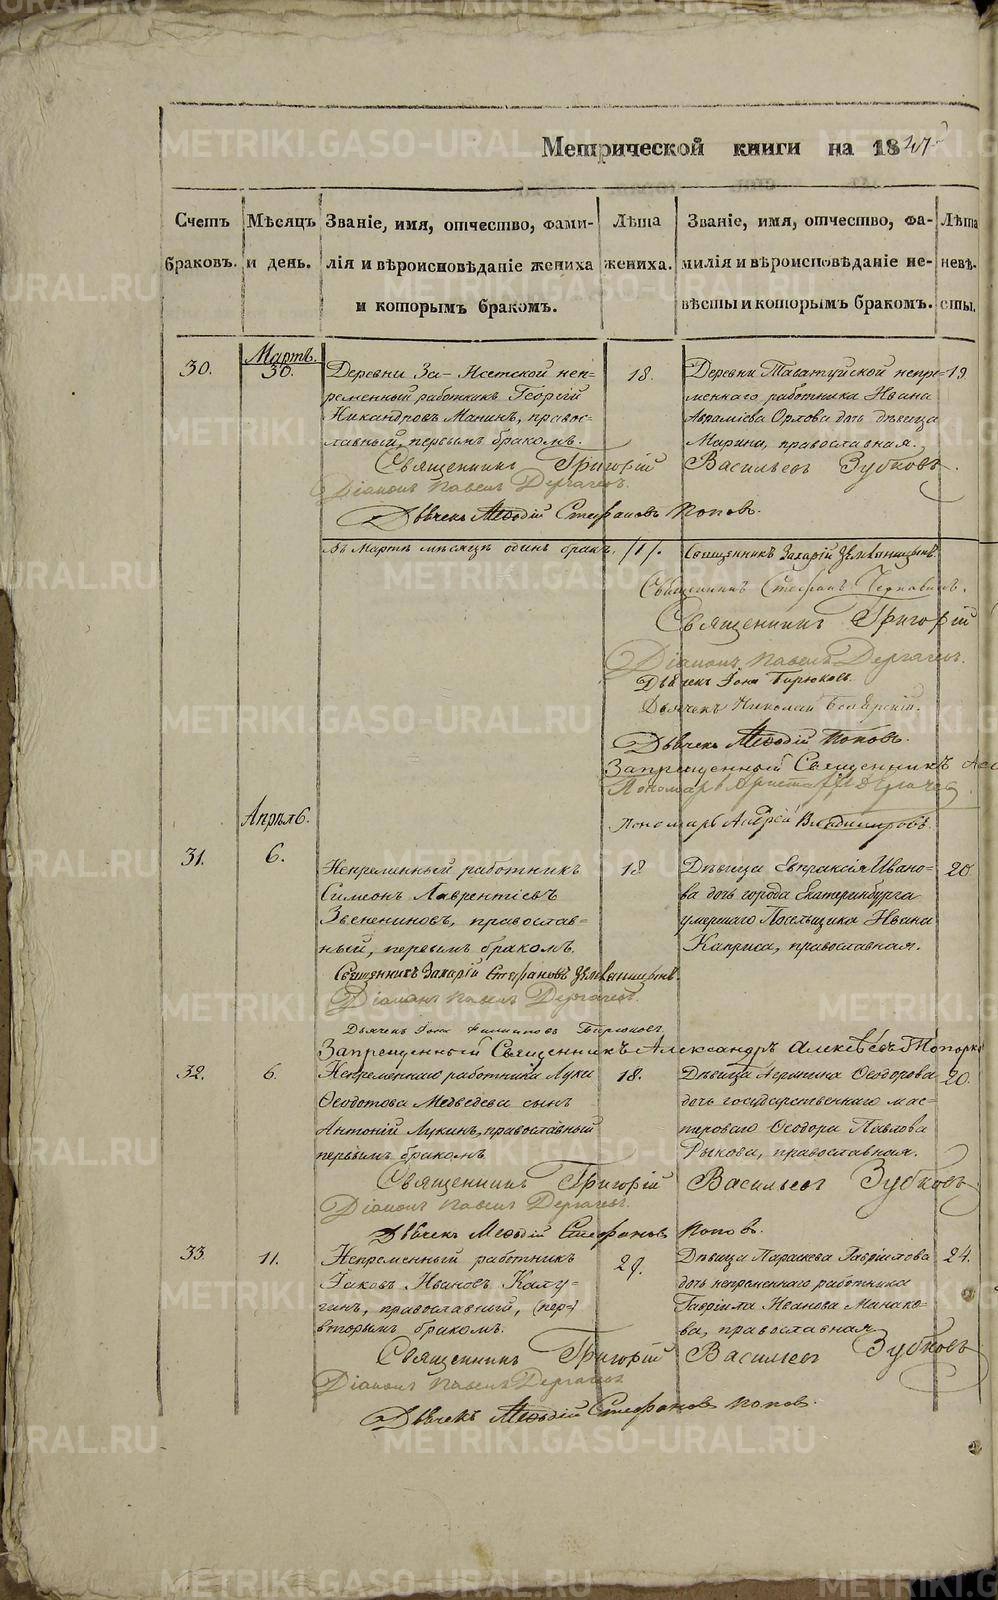 Метрической книги на 1847
Счетъ браковъ.
Мѣсяцъ и день.
Званіе, имя, отчество, фами-
лія и вѣроисповѣданіе жениха
и которымъ бракомъ.
Лѣта жениха.
Званіе, имя, отчество, фа-
милія и вѣроисповѣданіе не-
вѣсты и которымъ бракомъ.
Лѣта невѣ-
сты.
Мартъ.
30.
30.
Деревни За-Исетской неп-
ременный работникъ Георгій
Никандровъ Манинъ, правос-
лавный, первымъ бракомъ.
18.
Деревни Таватуйской непре-
меннаго работника Ивана
Аврамiева Орлова дочь дѣвица
Марина, православная.
19
Священникъ Григорій Васильевъ Зубковъ.
Діаконъ Павелъ Дергачевъ.
Дьячекъ Меѳодій Стефановъ Поповъ.
Въ Мартѣ мѣсяцѣ одинъ бракъ. /1/.
Священникъ Захарій
Священникъ Стефанъ
Священникъ Григорій
Діаконъ Павелъ Дергачевъ.
Дьячекъ Іона Бирюковъ.
Дьячекъ Николай
Дьячекъ Меѳодій Поповъ.
Запрещенный Священникъ
Пономарь
Пономарь Андрей Владимировъ.
Апрѣль.
31.
6.
Непременный работникъ
Симеонъ Лаврентіевъ
Звенениновъ, православ-
ный, первымъ бракомъ.
18
Дѣвица Евпраксія Ивано-
ва дочь города Екатеринбурга
умершаго Посельщика Ивана
Каприса, православная.
20
Священникъ Захарій Стефановъ
Діаконъ Павелъ Дергачевъ.
Дьячекъ Іона Филиповъ Бирюковъ.
Запрещенный Священникъ Александръ Алексѣевъ Топорко
32.
6.
Непременнаго работника Луки
Ѳеодотова Медведева сынъ
Антоній Лукинъ, православный
первымъ бракомъ
18.
Дѣвица Агрипина Ѳеодорова
дочь государственнаго мас-
тероваго Ѳеодора Павлова
Рыкова, православная.
20.
Священникъ Григорій Васильевъ Зубковъ
Діаконъ Павелъ Дергачевъ.
Дьячекъ Меѳодій Стефановъ Поповъ.
33
11.
Непременный работникъ
Іаковъ Ивановъ Калу-
гинъ, православный, (пер-)
вторымъ бракомъ.
29.
Дѣвица Параскева Гавріилова
дочь непременнаго работника
Гавріила Иванова Минако-
ва, православная
24.
Священникъ Григорій Васильевъ Зубковъ
Діаконъ Павелъ Дергачевъ
Дьячекъ Меѳодій Стефановъ Поповъ.
METRIKI.GASO-URAL.RU